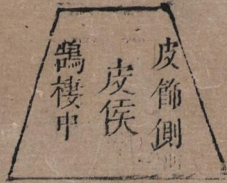 皮飾側
皮侯
鵠棲中